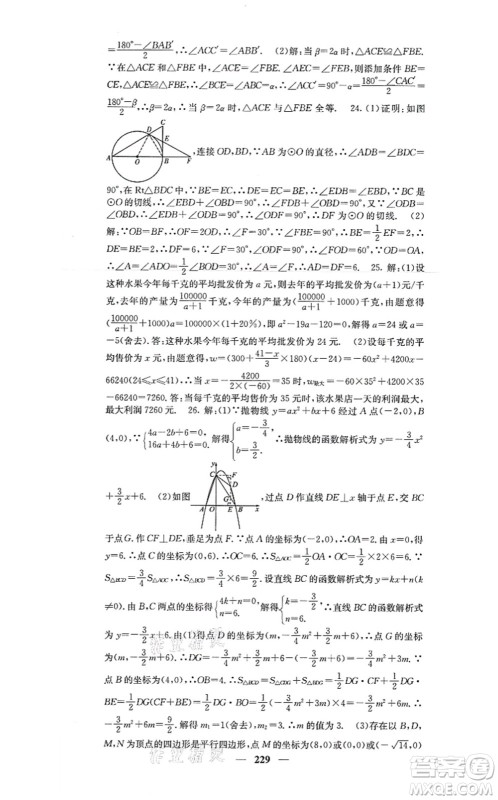 $\frac{180°-∠BAB'}{2}$,∴∠ACC'=∠ABB'. (2)解:当β=2α时,△ACE≌△FBE.
∵在△ACE和△FBE中,∠AEC=∠FEB,则添加条件BE=
CE,△ACE≌△FBE,∴∠BCE=α,∴∠ACC'=90°-α=$\frac{180°-∠CAC'}{2}$=
$\frac{180°-β}{2}$,∴β=2α时,△ACE与△FBE全等. 24.(1)证明:如图
C
D
E
A O B F
,连接OD,BD,∵AB为⊙O的直径,∴∠ADB=
90°,在Rt△BDC中,∵BE=EC,∴DE=EC=BE,∵BC是以AB为直径的
⊙O的切线,∴∠EBD+∠OBD=90°,∴∠ODE=90°,∵∠ODB=
∠OBD,∴∠EDB+∠ODB=90°,∴DF为⊙O的切线. (2)
解:∵∠OBE=90°,∠F=30°,BE=2,∴DE=BE=$\frac{1}{2}$EF=2,∴
DF=6,∵∠F=30°,∠ODF=90°,∴∠FOD=60°,∵OD=OA,
∴∠A=∠ADO=$\frac{1}{2}$∠BOD=30°,∴∠A=∠F. 25.解:(1)设
这种水果今年每千克的平均批发价为a元,则去年的批发价为(a+1)元/千
克,去年的批发量为$\frac{100000}{a+1}$千克,今年为$\frac{100000}{a}$千克,由题意得
($\frac{100000}{a+1}$+1000)a=100000×(1+20%),即a²-19a-120=0,解得a=24或a=
-5(舍去). 答:这种水果今年每千克的平均批发价是24元. (2)设每千克的平
均售价为x元,由题意得:w=(300+$\frac{41-x}{3}$×180)(x-24)=-60x²+4200x-
66240(24≤x≤41),∴当x=-$\frac{4200}{2×(-60)}$=35时,w最大=-60×35²+4200×35
-66240=7260. 答:当每千克平均售价为35元时,该水果店一天的利润最大,
最大利润7260元. 26.解:(1)∵抛物线y=ax²+bx+6经过点A(-2,0),
B(4,0),∴{4a-2b+6=0, 16a+4b+6=0. 解得{a=-$\frac{3}{4}$, b=$\frac{3}{2}$. ∴抛物线的函数解析式为y=-$\frac{3}{4}$x²
+$\frac{3}{2}$x+6. (2)如图
,过点D作直线DE⊥x轴于点E,交BC
于点G,作CF⊥DE,垂足为点F.∵点A的坐标为(-2,0),∴OA=2.由x=0,得
y=6,∴点C的坐标为(0,6),∴OC=6,∴S△AOC=$\frac{1}{2}$OA·OC=$\frac{1}{2}$×2×6=6,
∵S△BCD=$\frac{3}{4}$S△AOC,∴S△BCD=$\frac{3}{4}$×6=$\frac{9}{2}$. 设直线BC的函数解析式为y=kx+n,
由B,C两点的坐标得{4k+n=0, n=6. 解得{k=-$\frac{3}{2}$, n=6. ∴直线BC的函数解析式为y=
-$\frac{3}{2}$x+6.∵点D的坐标为(m,-$\frac{3}{4}$m²+$\frac{3}{2}$m+6)(1<m<4),∴点G的坐
标为(m,-$\frac{3}{2}$m+6),∴DG=-$\frac{3}{4}$m²+$\frac{3}{2}$m+6-(-$\frac{3}{2}$m+6)=-$\frac{3}{4}$m²+3m.
∵点B的坐标为(4,0),∴OB=4.∵S△BCD=S△CDG+S△BDG=$\frac{1}{2}$DG·CF+$\frac{1}{2}$DG·
BE=$\frac{1}{2}$DG·BO=$\frac{1}{2}$(-$\frac{3}{4}$m²+3m)×4=-$\frac{3}{2}$m²+6m,∴-$\frac{3}{2}$m²+
6m=$\frac{9}{2}$,解得m₁=1(舍去),m₂=3,∴m的值为3. (3)存在,以点B,D,
M,N为顶点的四边形是平行四边形,此时点M的坐标为(8,0)或(0,0)或(-√14,0)
229